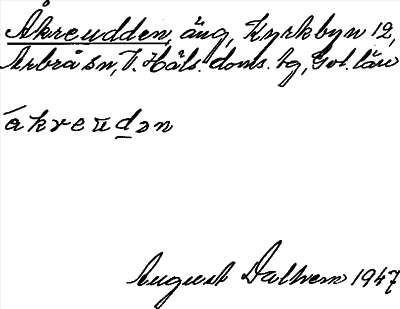 Åkreudden, äng, Kyrkbyn 12,
Arbrå sn, V. Häls. doms. hg, Gvl. län
åkreudən
August Dalhem 1947